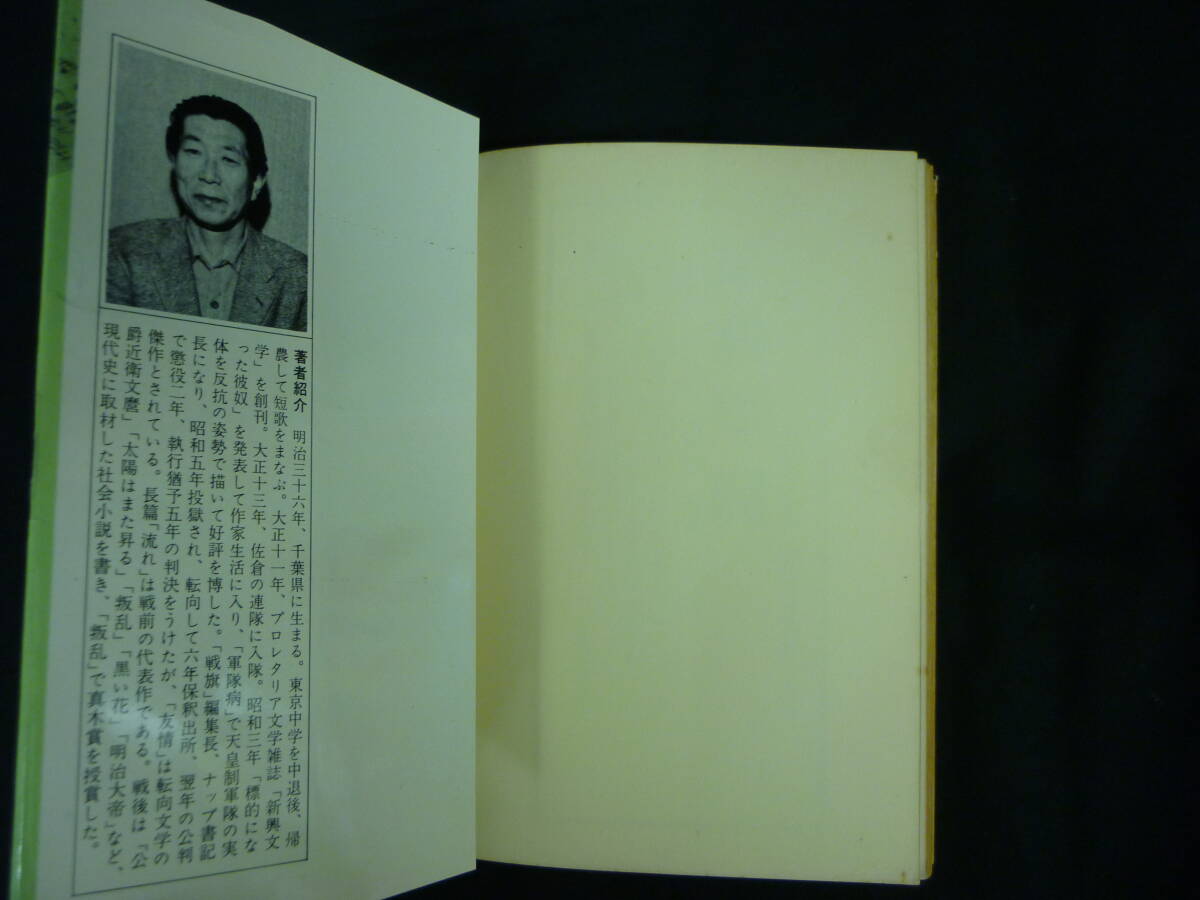 著者紹介　明治三十六年、千葉県に生まる。東京中学を中退後、帰
農して短歌をまなぶ。大正十一年、プロレタリア文学雑誌「新興文
学」を創刊。大正十三年、佐倉の連隊に入隊。昭和三年「標的にな
った彼奴」を発表して作家生活に入り、「軍隊病」で天皇制軍隊の実
体を反抗の姿勢で描いて好評を博した。「戦旗」編集長、ナップ書記
長になり、昭和五年投獄され、転向して六年保釈出所、翌年の公判
で懲役二年、執行猶予五年の判決をうけたが、「友情」は転向文学の
傑作とされている。長篇「流れ」は戦前の代表作である。戦後は「公
爵近衛文麿」「太陽はまた昇る」「叛乱」「黒い花」「明治大帝」など、
現代史に取材した社会小説を書き、「叛乱」で真木賞を授賞した。